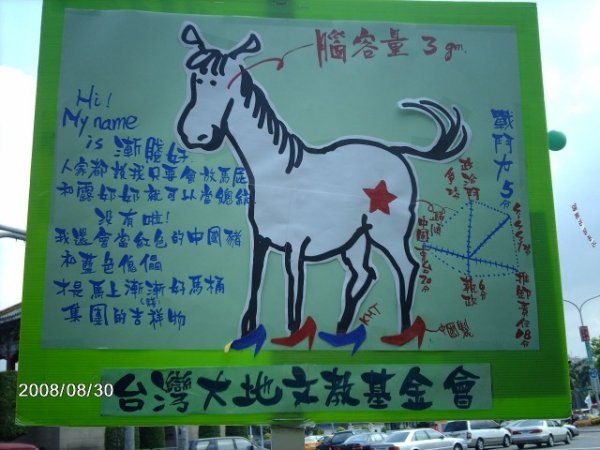 腦容量 3 gm.
Hi!
My name
is 漸 好
人家都說我只要會放馬屁
和露奶奶就可以當總統
沒有啦!
我還會當紅色的中國豬
和藍色傀儡
才是馬上漸漸好馬桶
集團的吉祥物
戰鬥力 5分
推卸責任
KMT
中國製
台灣大地文教基金會
2008/08/30